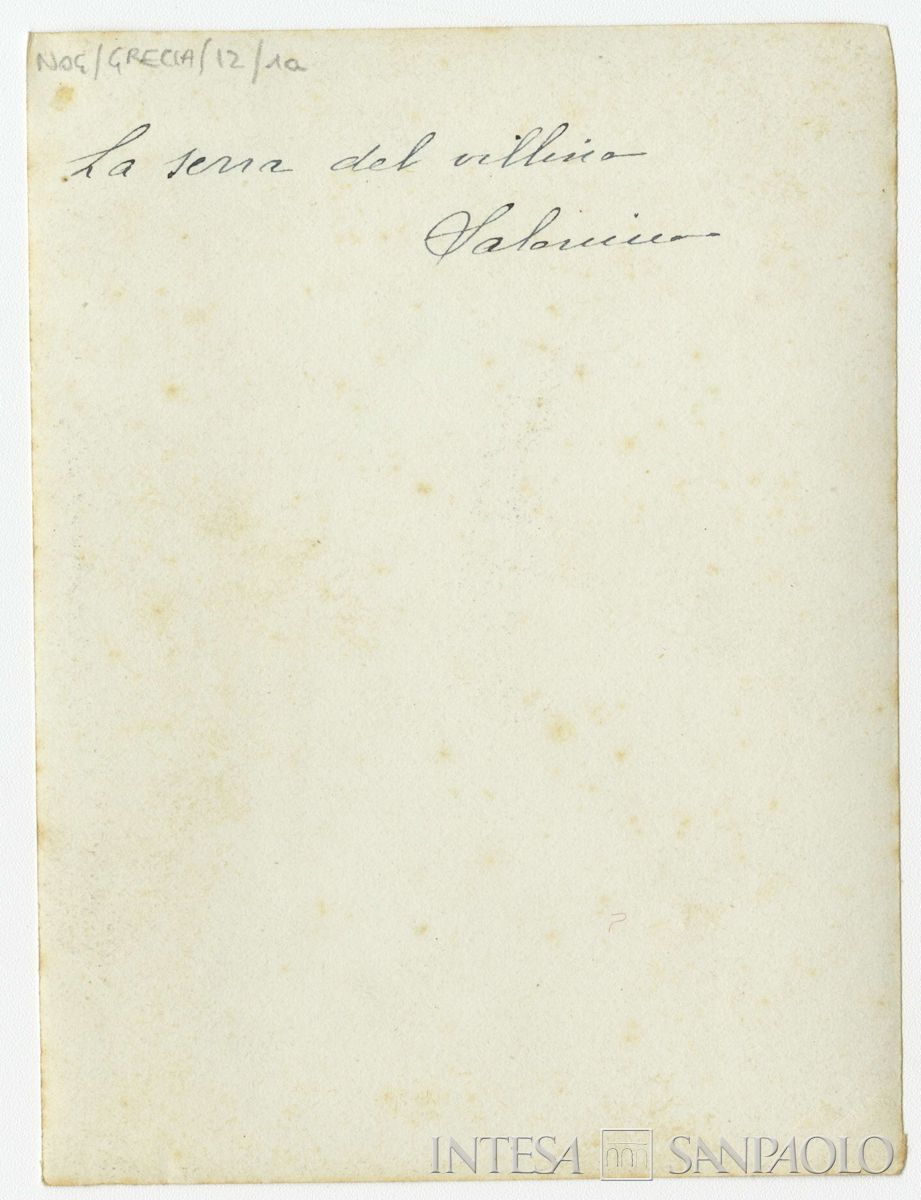 NOG/GRECIA/12/1a
La serra del villino
INTESA SANPAOLO